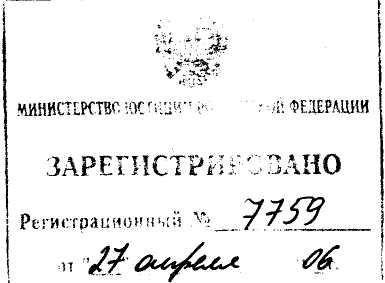 МИНИСТЕРСТВО ЮСТИЦИИ РОССИЙСКОЙ ФЕДЕРАЦИИ
ЗАРЕГИСТРИРОВАНО
Регистрационный № 7759
от "27 апреля 06.